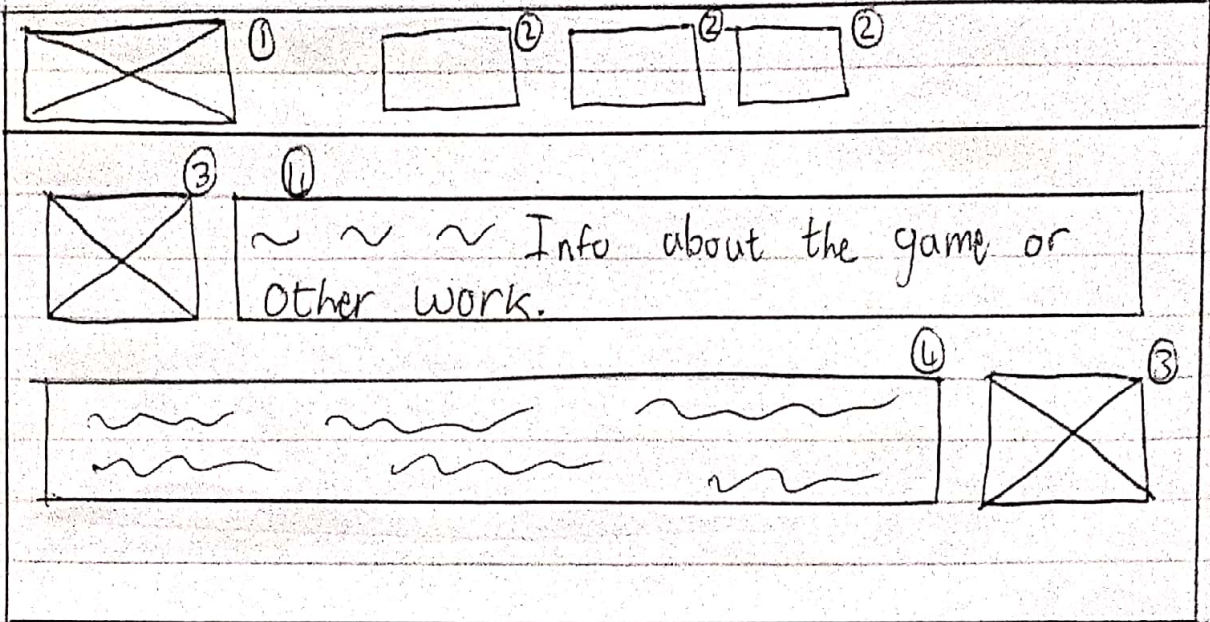 ① ② ② ②
③ ④
Info about the game or
other work.
④ ③